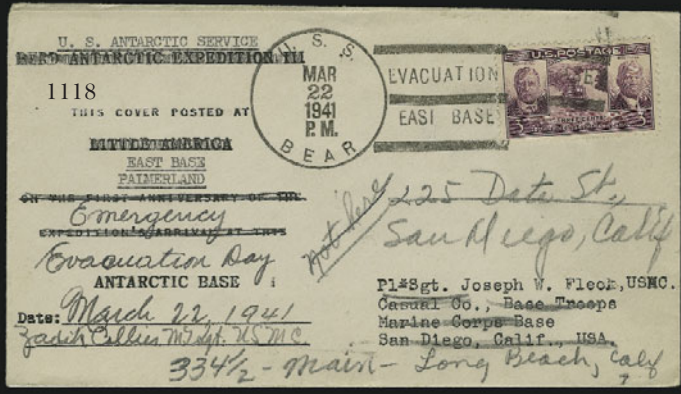 U. S. ANTARCTIC SERVICE
BYRD ANTARCTIC EXPEDITION III
1118
THIS COVER POSTED AT
LITTLE AMERICA
EAST BASE
PALMERLAND
ON THE FIRST ANNIVERSARY OF THE
Emergency
EXPEDITION'S ARRIVAL AT THIS
Evacuation Day
ANTARCTIC BASE
Date: March 22, 1941
Zadik Collier M T Sgt. USMC
U. S. S. BEAR
MAR
22
1941
P.M.
EVACUATION
EAST BASE
U.S. POSTAGE
THREE CENTS
not here
225 Date St.,
San Diego, Calif
PlSgt. Joseph W. Fleck, USMC.
Casual Co., Base Troops
Marine Corps Base
San Diego, Calif., USA.
334½ - Main - Long Beach, Calif